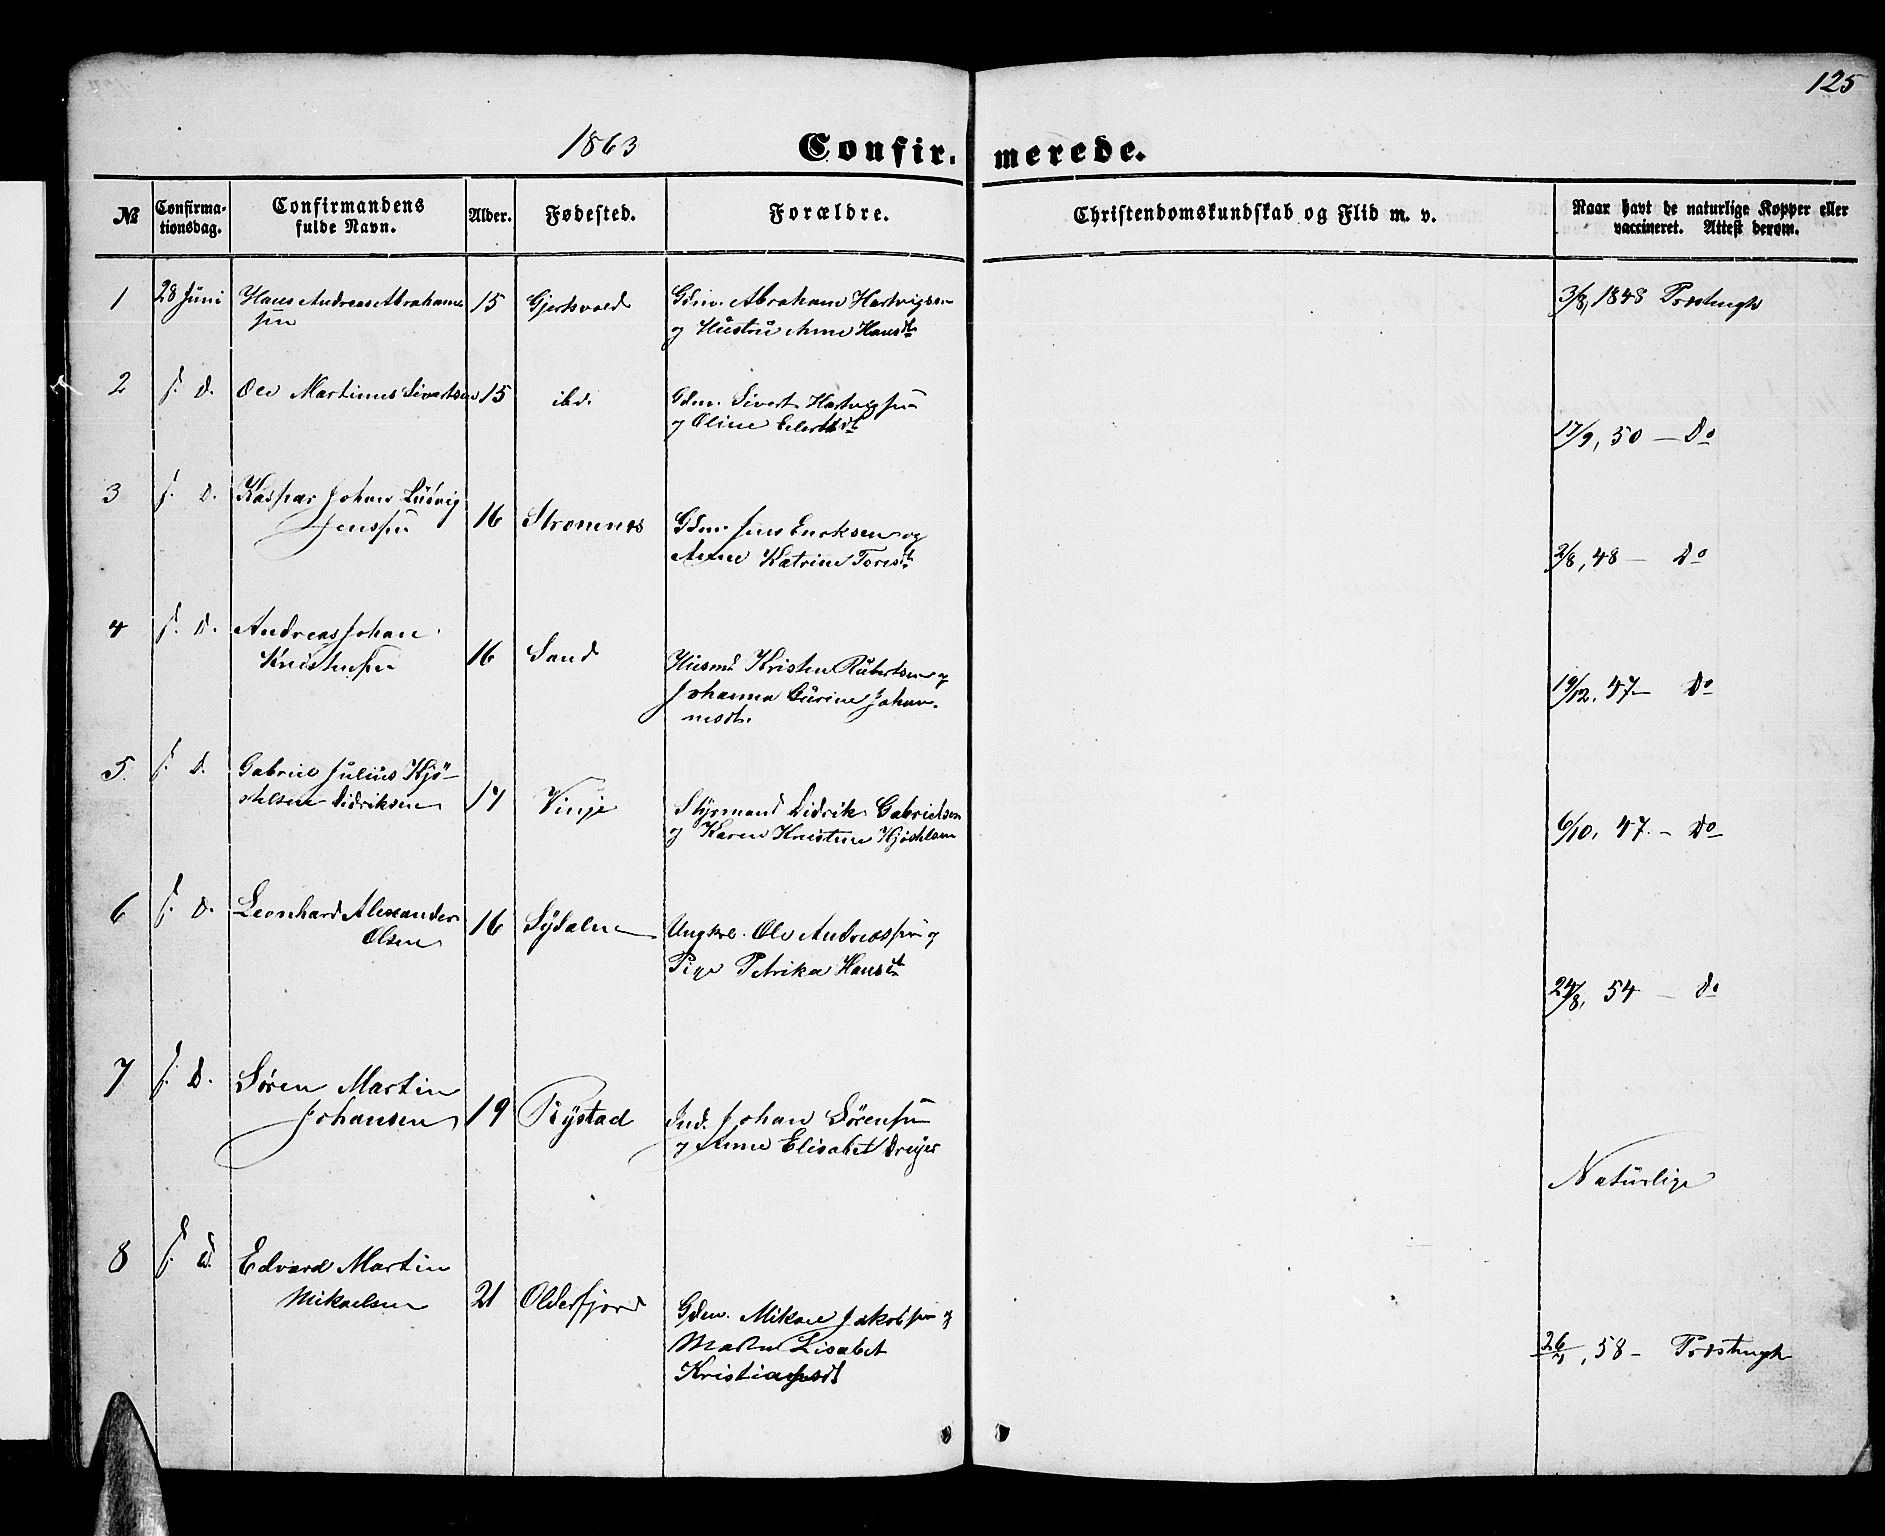 125
1863
Confir- merede.
№ Confirma-tionsdag. Confirmandens fulde Navn. Alder. Fødested. Forældre. Christendomskundskab og Flid m. v. Naar havt de naturlige Kopper eller vaccineret. Attest derom.
1 28 Juni Hans Andreas Abraham- 15 Gjerkvold Gdm. Abraham Hartvigsen 3/8, 1848
sen og Hustru Anne Hansdt
2 s. D. Ole Martinus Sivertsen 15 ibd. Gdm. Sivert Hartvigsen
og Oline 17/9, 50 — Do
3 s. D. Kaspar Johan Ludvig
Jenssen 16 Stromnes Gdm. Jens Eriksen og
Anne Katrine Toresdt 2/8, 48 — Do
4 s. D. Andreas Johan
Kristensen 16 Sand Husmd Kristen Rubertsen og
Johanna Gurine Johan-
nesdt. 19/12, 47 — Do
5. s. D. Gabriel Julius Hjö-
Didriksen 17 Vinje Styrmand Didrik Gabrielsen
og Karen Kristine 6/10, 47. — Do
6 s. D. Leonhard Alexander
Olsen 16 Sydalen Ungkrl. Ole Andreassen og
Pige Petrika Hansdt
24/8, 54 — Do
7 s. D. Søren Martin
Johansen 19 Rystad Ind. Johan Sørensen
og Anne Elisabet Dreyer
Naturlige
8 s. D. Edvard Martin
Mikaelsen 21 Olderfjord Gdm. Mikael Jakobsen og
Lisabet
Kristiansdt 58 —